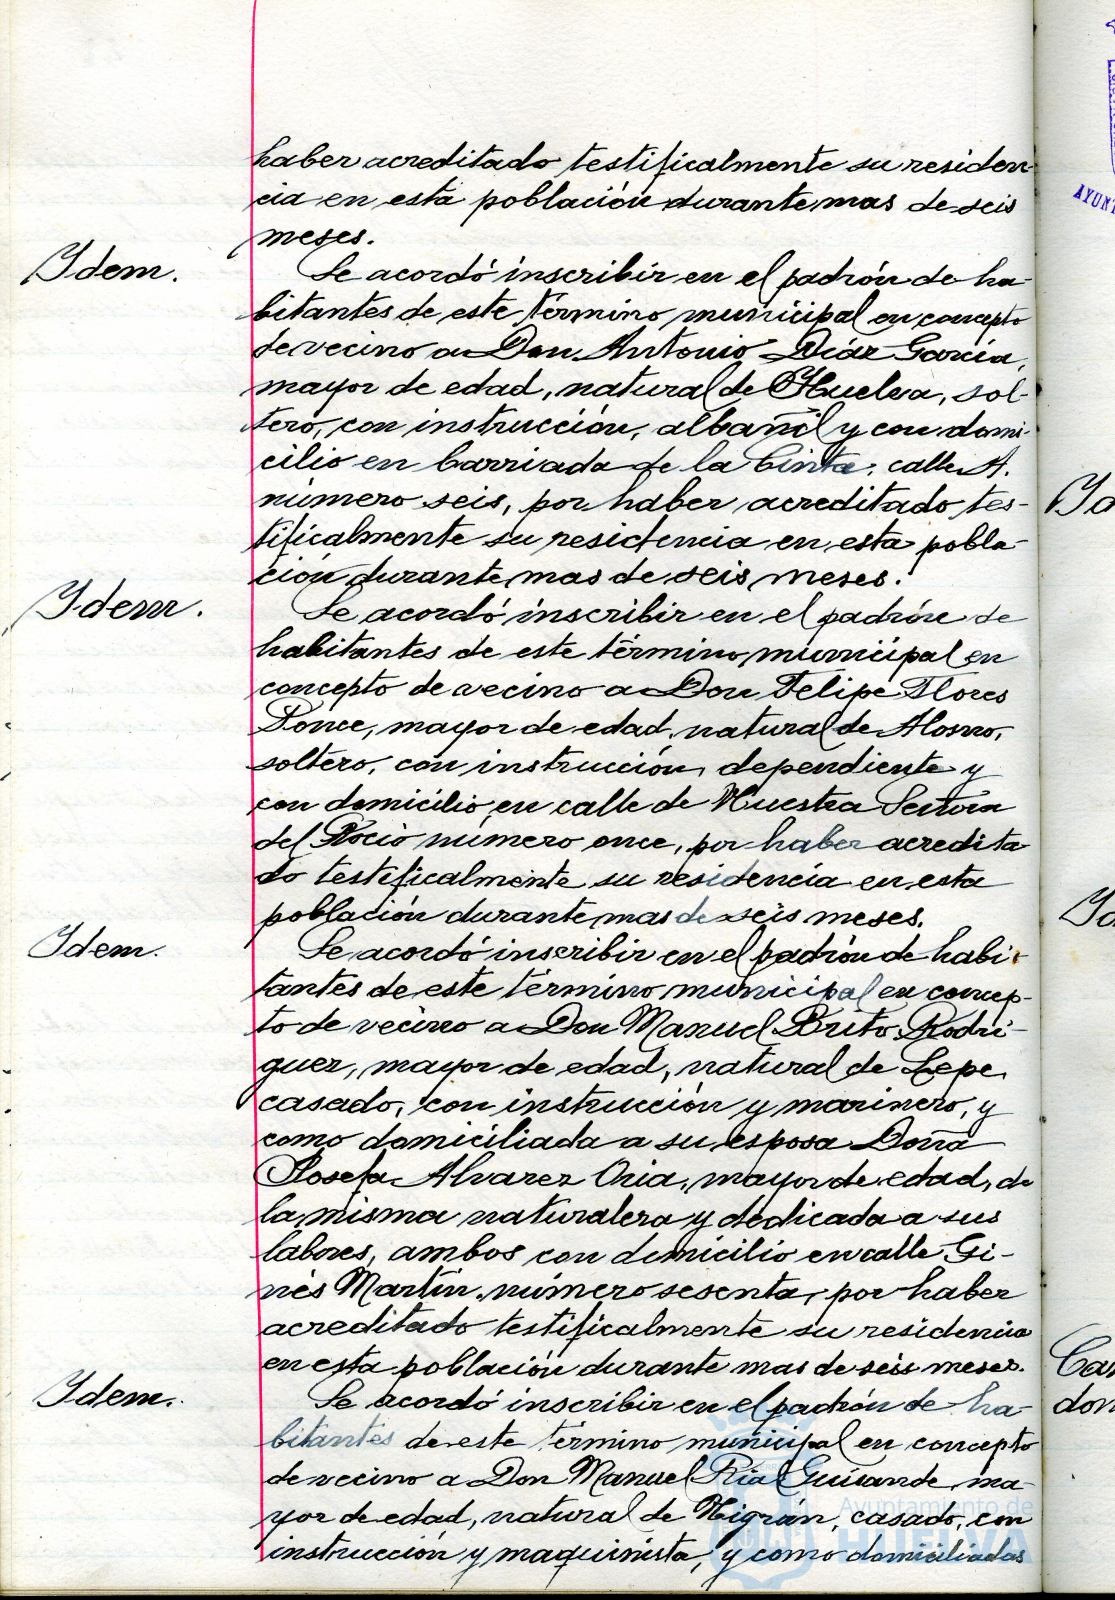 haber acreditado testificalmente su residen-
cia en esta población durante mas de seis
meses.
Idem.
Se acordó inscribir en el padrón de ha-
bitantes de este término municipal en concepto
de vecino a Don Antonio Diáz García,
mayor de edad, natural de Huelva, sol-
tero, con instrucción, albañil y con domi-
cilio en barriada de la Cinta, calle A.
número seis, por haber acreditado tes-
tificalmente su residencia en esta pobla-
ción durante mas de seis meses.
Idem.
Se acordó inscribir en el padrón de
habitantes de este término municipal en
concepto de vecino a Don Felipe Flores
Ponce, mayor de edad, natural de Alosno,
soltero, con instrucción, dependiente y
con domicilio en calle de Nuestra Señora
del Rocio número once, por haber acredita
do testificalmente su residencia en esta
población durante mas de seis meses.
Idem.
Se acordó inscribir en el padrón de habi-
tantes de este término municipal en concep-
to de vecino a Don Manuel Brito Rodri-
guez, mayor de edad, natural de Lepe,
casado, con instrucción y marinero, y
como domiciliada a su esposa Doña
Josefa Alvarez Oria, mayor de edad, de
la misma naturaleza y dedicada a sus
labores, ambos con domicilio en calle Gi-
nés Martín, número sesenta, por haber
acreditado testificalmente su residencia
en esta población durante mas de seis meses.
Idem.
Se acordó inscribir en el padrón de ha-
bitantes de este término municipal en concepto
de vecino a Don Manuel Rial Guisande, ma-
yor de edad, natural de Nigrán, casado, con
instrucción y maquinista, y como domiciliadas
Ayuntamiento de
HUELVA